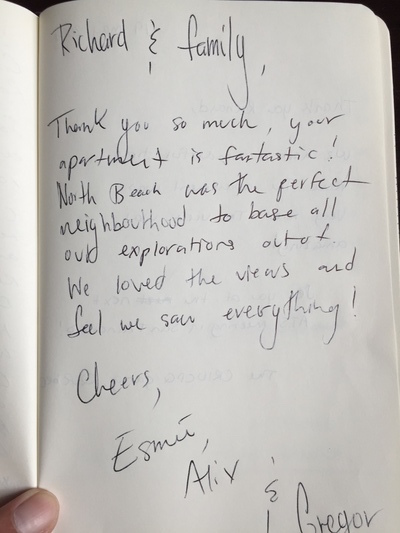 Richard & family,
Thank you so much, your
apartment is fantastic!
North Beach was the perfect
neighbourhood to base all
our explorations out of
We loved the views and
feel we saw everything!
Cheers,
Alix &
Gregor